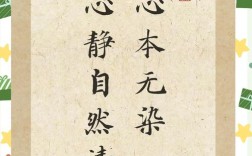 心本无染
心静自然清